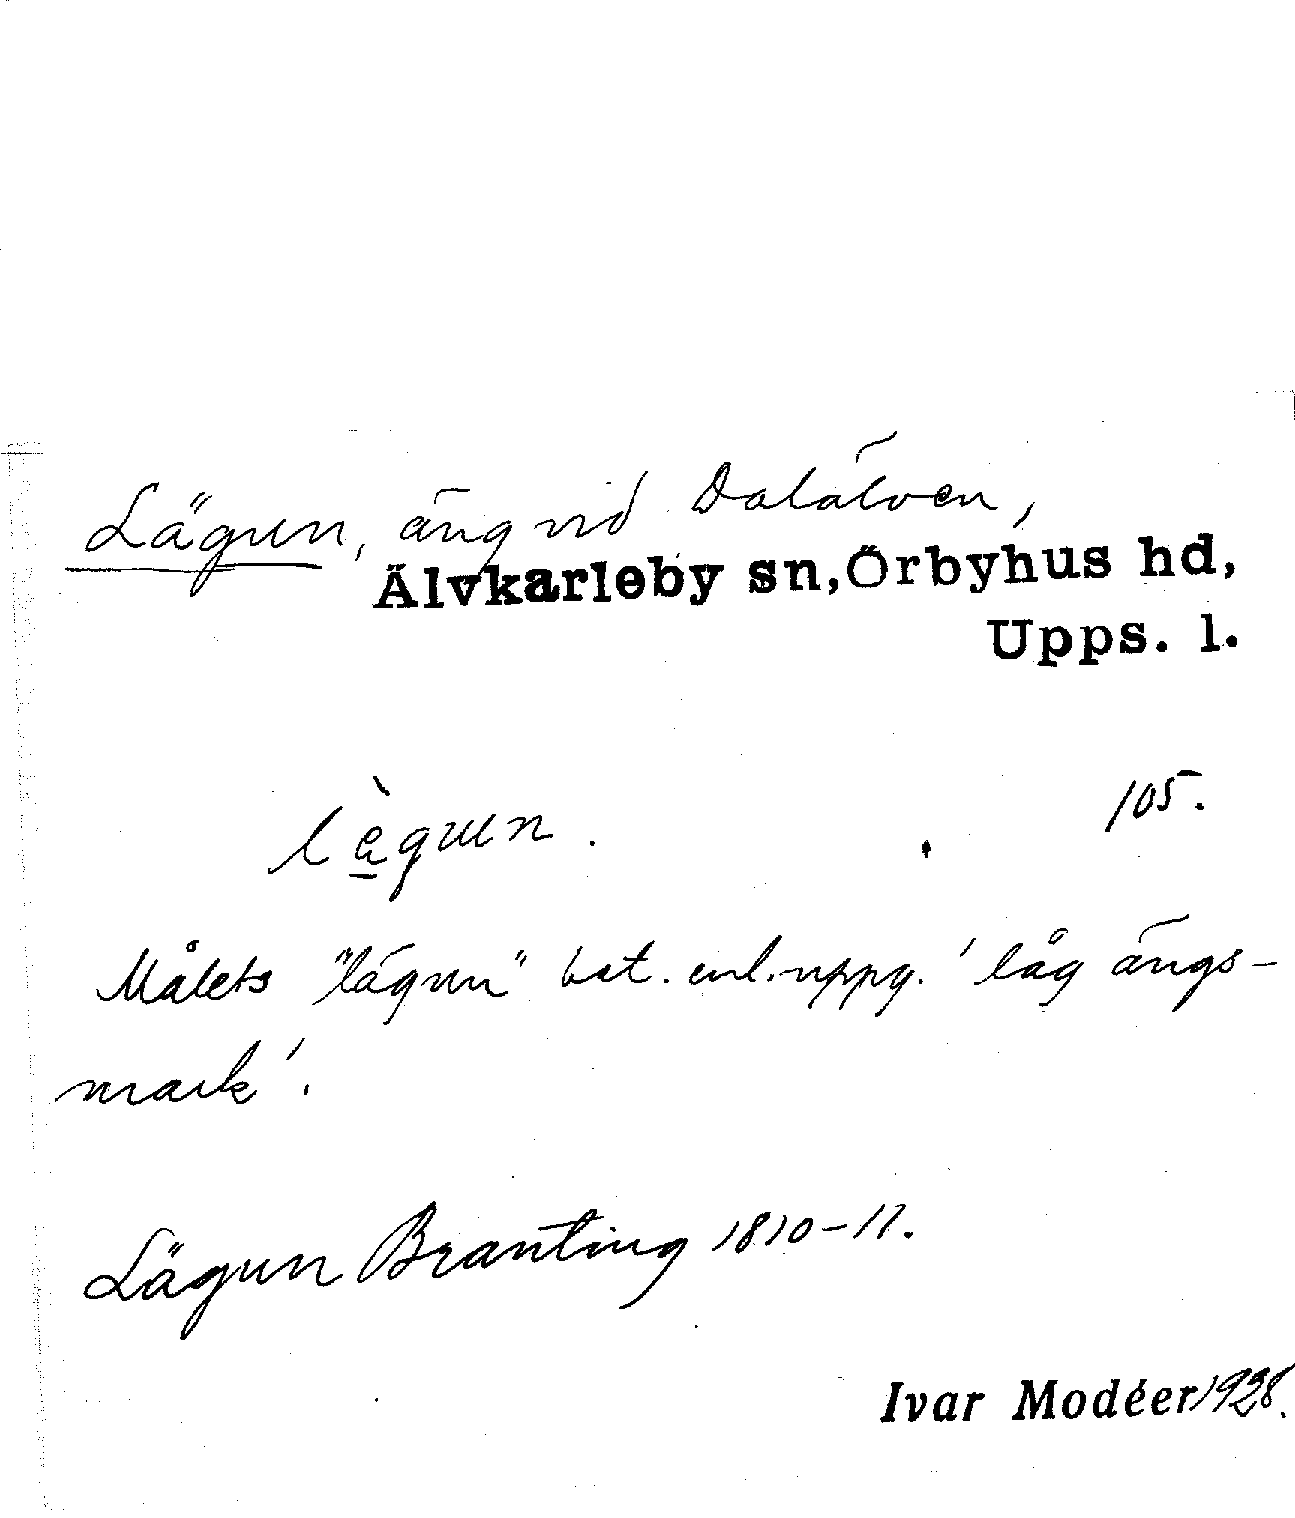 Lägun, äng vid Dalälven,
Älvkarleby sn, Örbyhus hd,
Upps. l.
105.
Målets "lägun" bet. enl. uppg. 'låg ängs-
mark'.
Lägun Branting 1810-11.
Ivar Modéer 1928.